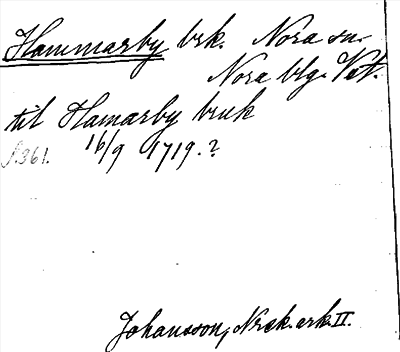 Hammarby brk. Nora sn.
Nora blg. Vstm.
til Hamarby bruk
s.361. 16/9 1719.?
Johansson, Nrsk. ark. II.